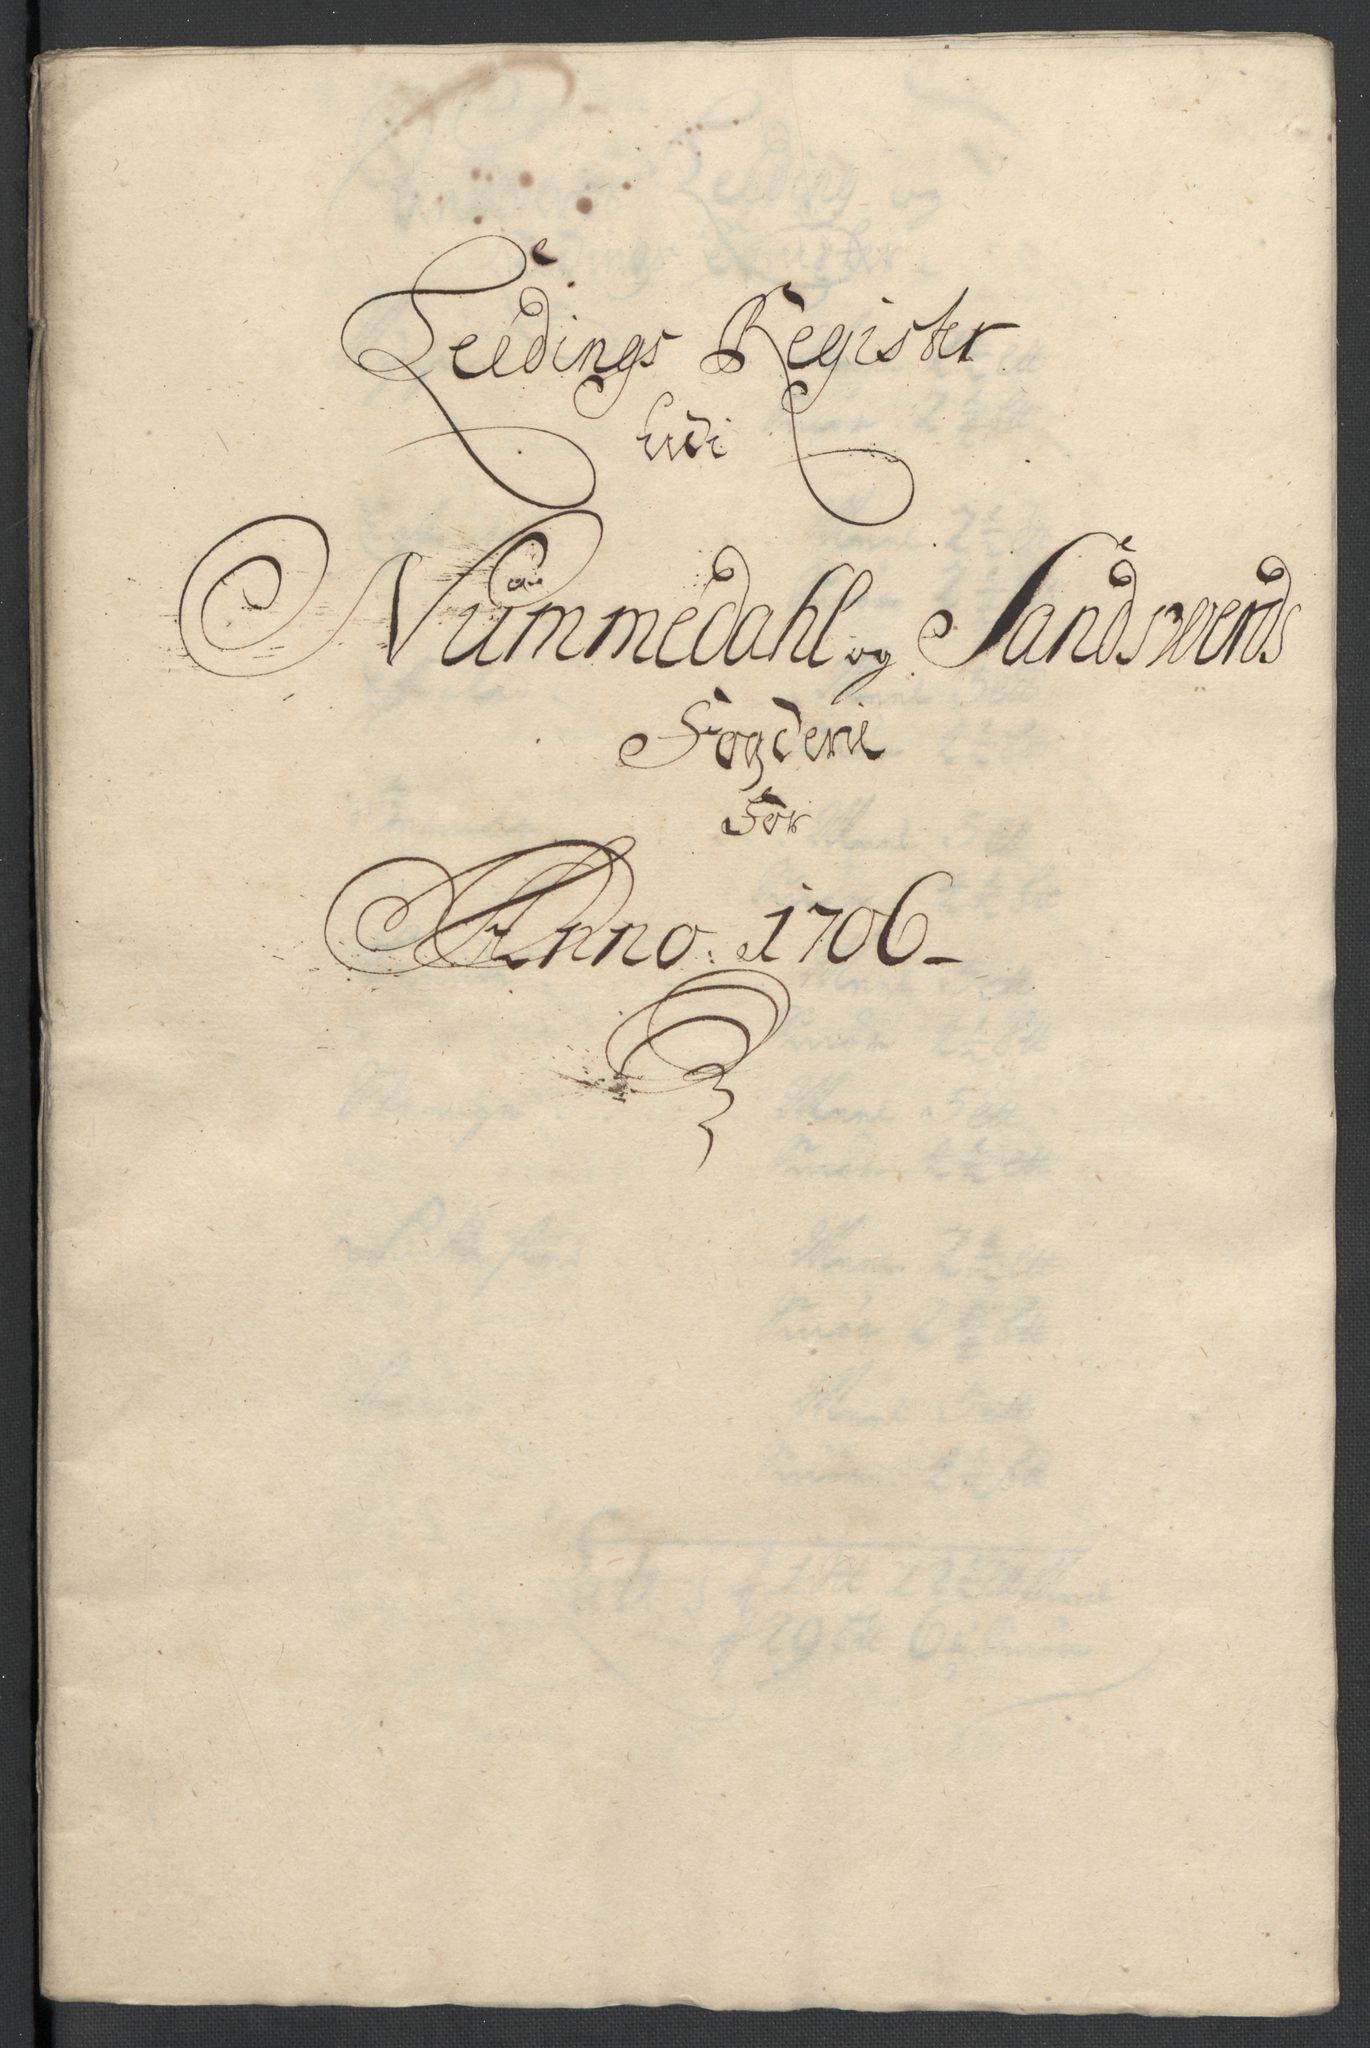 Leedings Register
udi
Nummedahl og Sandswerds
Fogderie
For
Anno. 1706